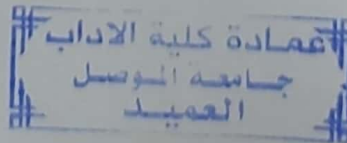 عمادة كلية الاداب
جامعة الموصل
العميد